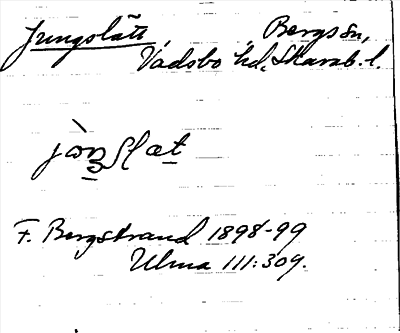 Jungslätt, Bergs sn,
Vadsbo hd, Skarab. l.
F. Bergstrand 1898-99
Ulma 111:309.